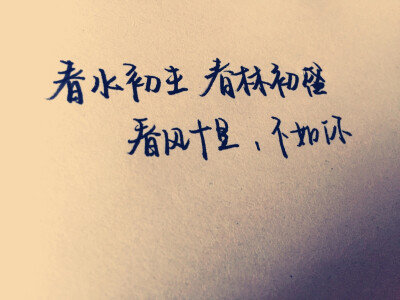 春水初生 春林初盛
春风十里，不如你